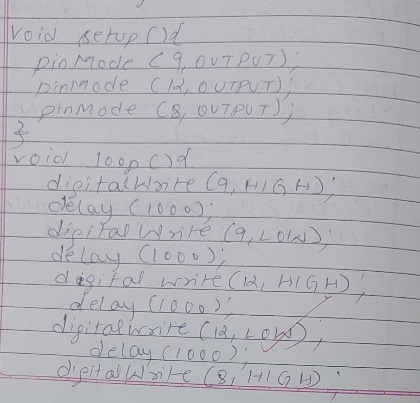 void setup(){
pinMode (9, OUTPUT);
pinMode (12, OUTPUT);
pinMode (8, OUTPUT);
}
void loop(){
digitalWrite (9, HIGH);
delay (1000);
digitalWrite (9, LOW);
delay (1000);
digital write (12, HIGH);
delay (1000);
digitalwrite (12, LOW);
delay (1000);
digitalWrite (8, HIGH);